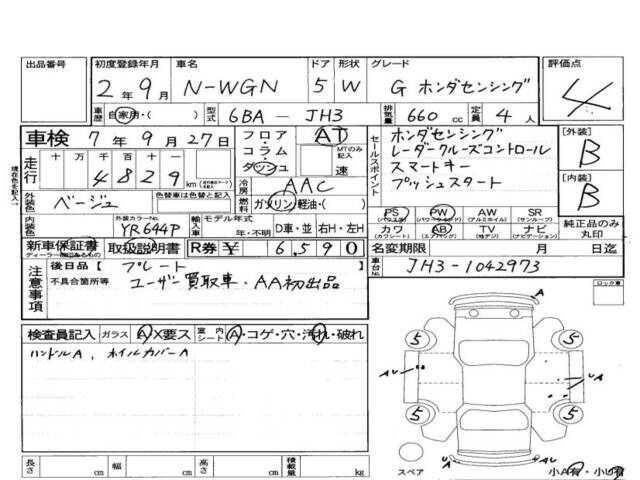 出品番号
初度登録年月 車名 ドア 形状 グレード 評価点
2年9月 N-WGN 5 W G ホンダセンシング 4
車歴 自家用・( ) 型式 6BA - JH3 排気量 660 cc 定員 4人
車検 7年9月27日
フロア コラム・ダッシュ AT MTのみ記入 速
セールスポイント
ホンダセンシング
レーダークルーズコントロール
スマートキー
プッシュスタート
[外装] B
[内装] B
走行 十万千百十一
4829 km
冷房 AAC
燃料 ガソリン 軽油・( )
現在色を記入→
外装色 ベージュ 色替車は色替と記入
内装色 外装カラーNo. YR644P
輸入車 モデル年式 年・不明 D車・並 右H・左H
PS (パワステ) PW (パワーウインド) AW (アルミホイル) SR (サンルーフ)
カワ (カワシート) AB (エアバッグ) TV (テレビ) ナビ (ナビゲーション)
純正品のみ丸印
新車保証書 ディーラー捺印あるもの 取扱説明書 R券 ¥ 6,590
名変期限 月 日迄
車台No. JH3-1042973
注意事項
後日品[ プレート
不具合箇所等 ユーザー買取車・AA初出品
ロック車
検査員記入 ガラス A X要ス 室内シート A・コゲ・穴・汚れ・破れ
ハンドルA、ホイルカバーA
A
5 5
AU UA
5 5
UA
スペア
小A有・小U有
長さ cm 幅 cm 高さ cm 積載量 kg